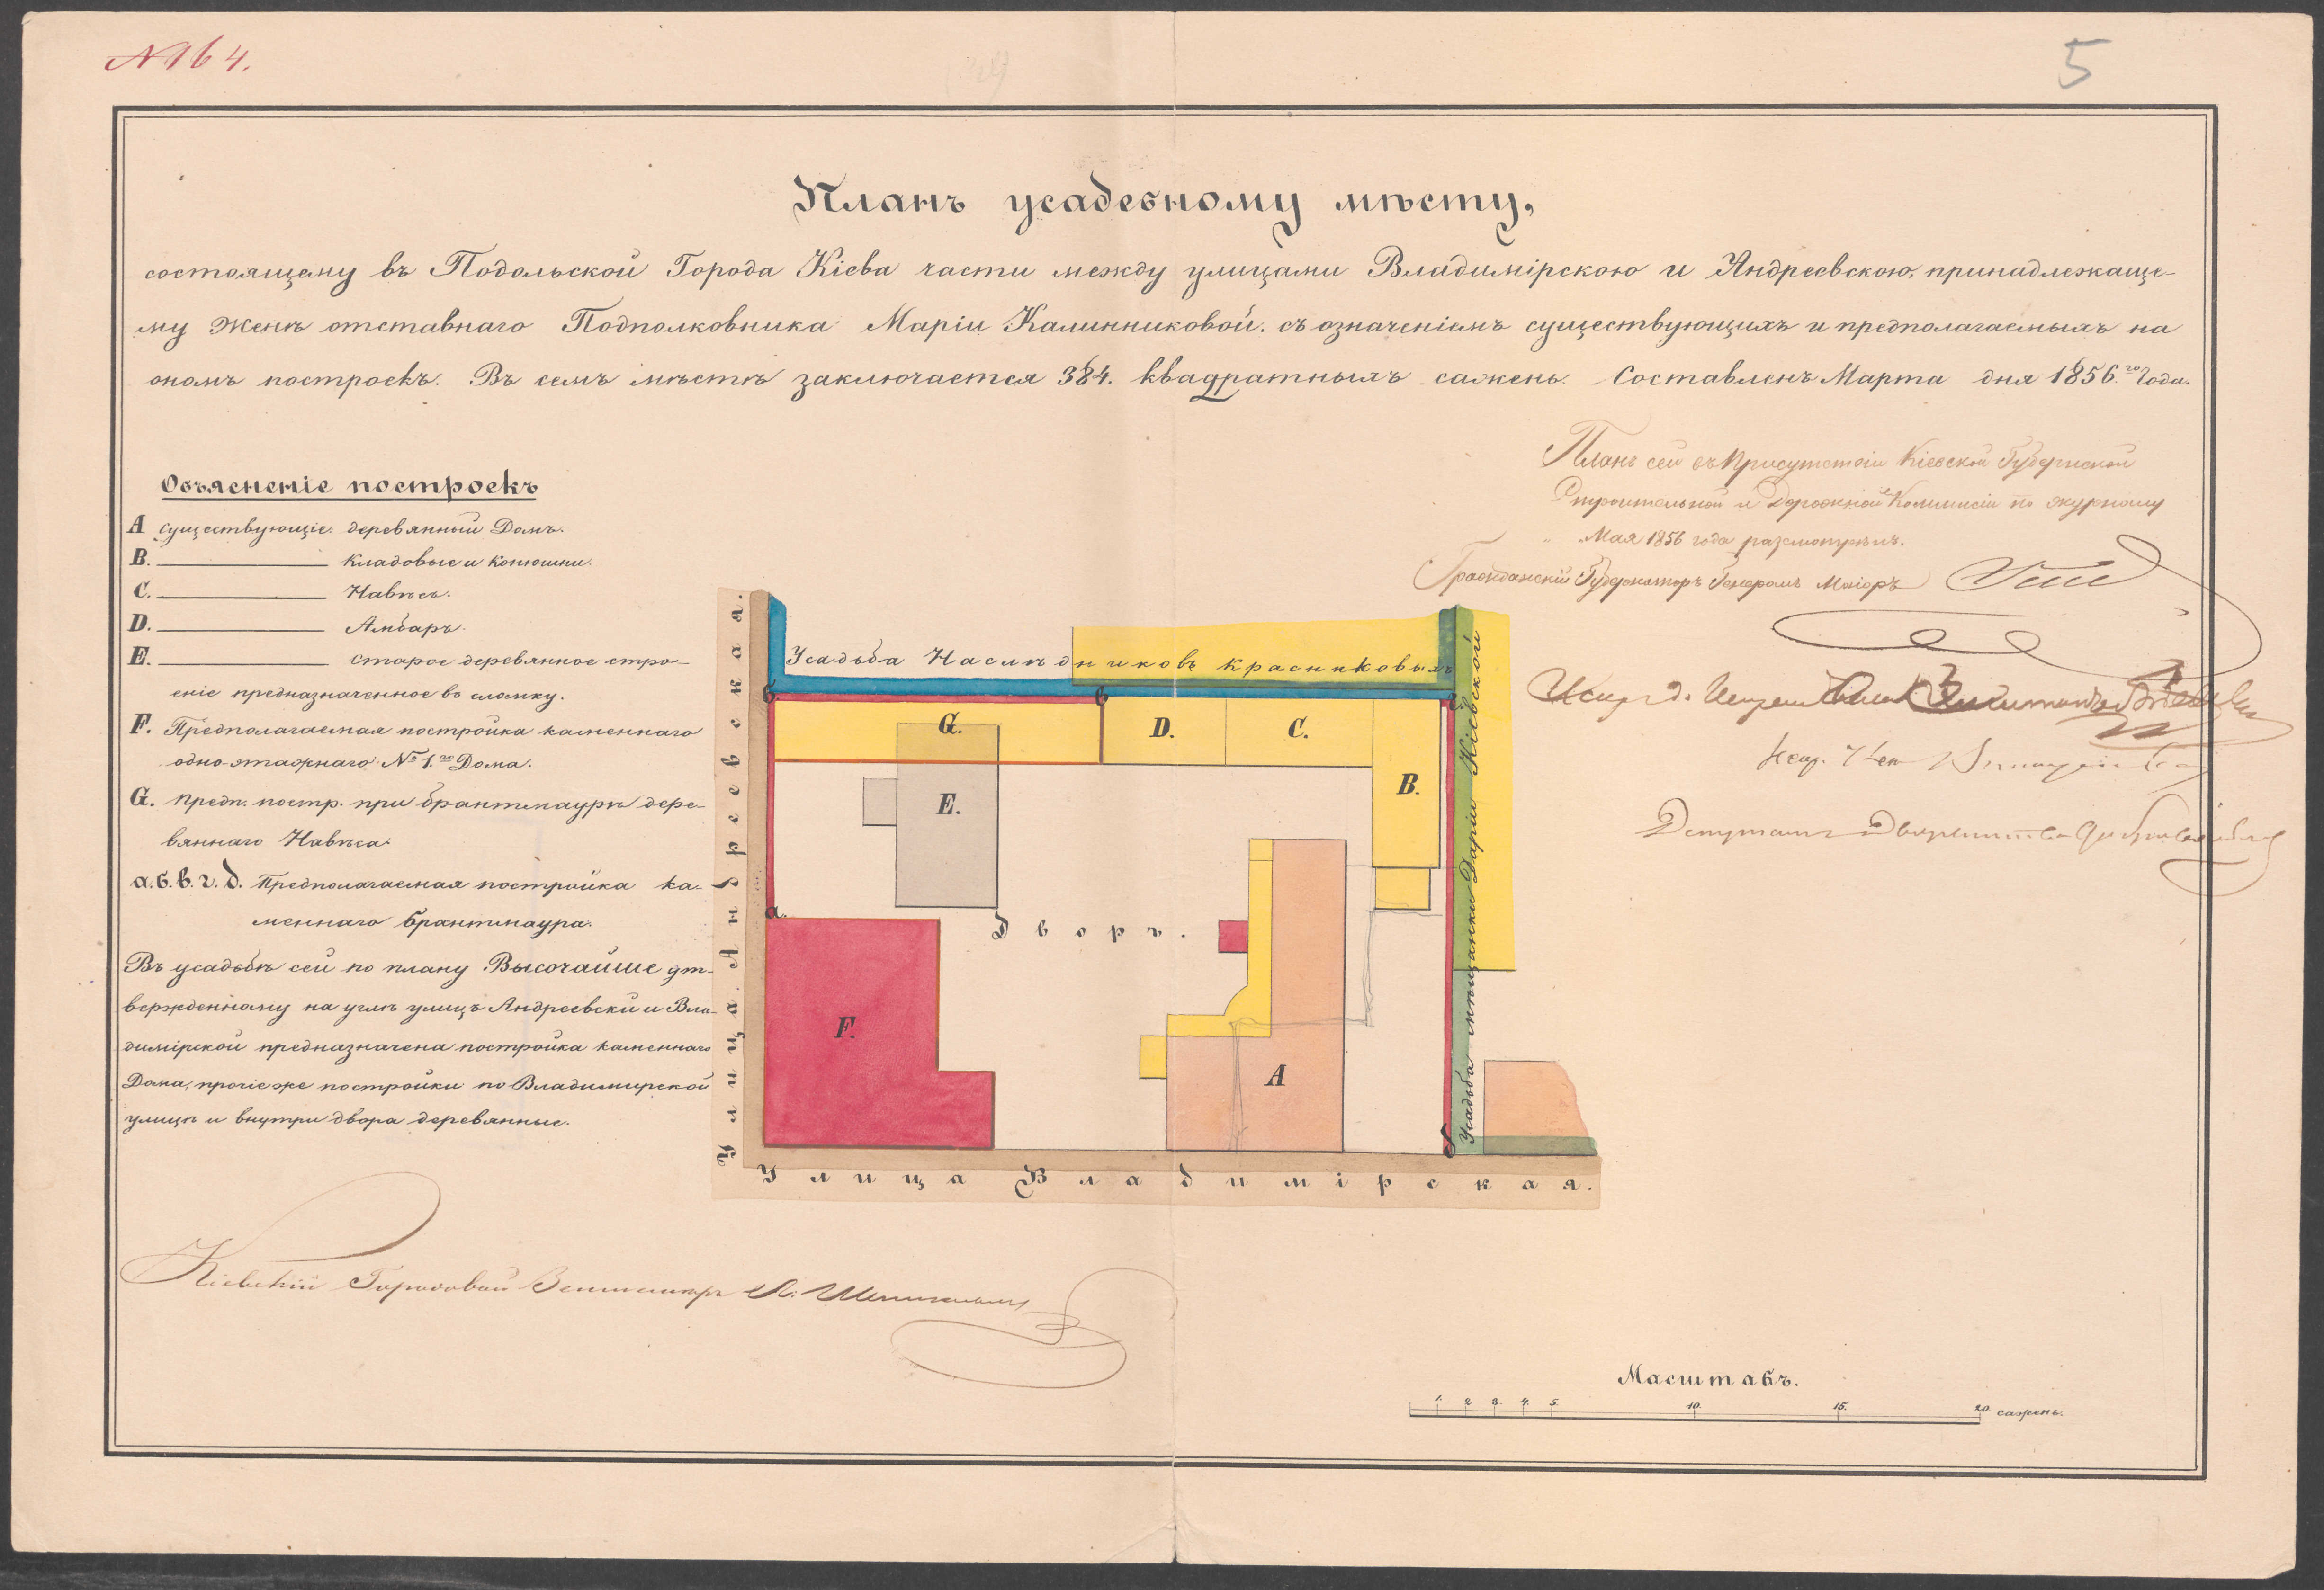 № 164.
5
Планъ усадебному мѣсту,
состоящему въ Подольской Города Кіева части между улицами Владимірскою и Андреевскою, принадлежаще-
му Женѣ отставнаго Подполковника Маріи Калинниковой. съ означеніемъ существующихъ и предполагаемыхъ на
ономъ построекъ. Въ семъ мѣстѣ заключается 384. квадратныхъ сажень. Составленъ Марта дня 1856.го Года.
Планъ сей въ Присутствіи Кіевской Губернской
Строительной и Дорожной Коммисіи по журналу
" Мая 1856 года разсмотрѣнъ.
Гражданскій Губернаторъ Генералъ Маіоръ
Объясненіе построекъ
А существующіе. деревянный Домъ.
B. Кладовые и конюшни.
C. Навѣсъ.
D. Амбаръ.
E. старое деревянное стро-
еніе предназначенное въ сломку.
F. Предполагаемая постройка каменнаго
одно-этажнаго № 1.го Дома.
G. предп. постр. при брантмаурѣ дере-
вяннаго Навѣса.
а. б. в. г. д. Предполагаемая постройка ка-
меннаго брантмаура.
Въ усадьбѣ сей по плану Высочайше ут-
вержденному на углѣ улицъ Андреевской и Вла-
димірской предназначена постройка каменнаго
Дома, прочіе же постройки по Владимирской
улицѣ и внутри двора деревянные.
Усадьба Наслѣдниковъ Красниковыхъ
б
в
г
G.
D.
C.
B.
E.
а.
Дворъ.
F.
A
д
Улица Андреевская.
Усадьба мѣщанки Даріи Кіевской
Улица Владимірская.
Кіевскій Городовой
Масштабъ.
1. 2 3. 4. 5. 10. 15. 20 сажень.